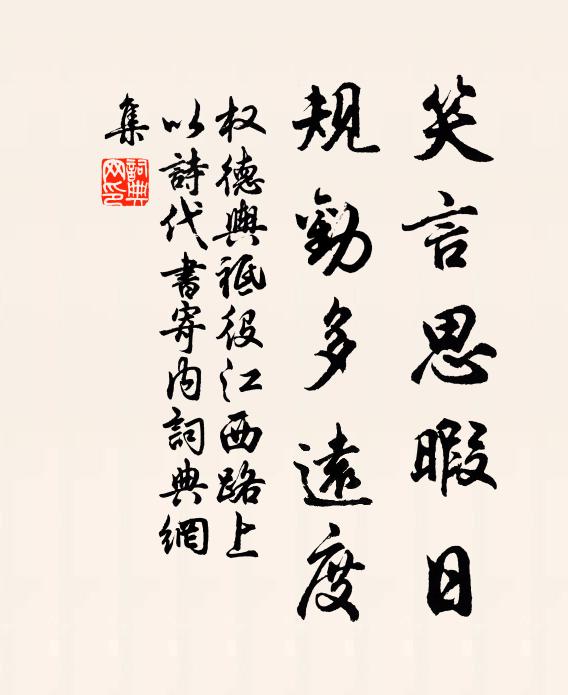 笑言思暇日
規勸多遠度
权德輿祗役江西路上
以詩代書寄內詞典網
集
詞典網印